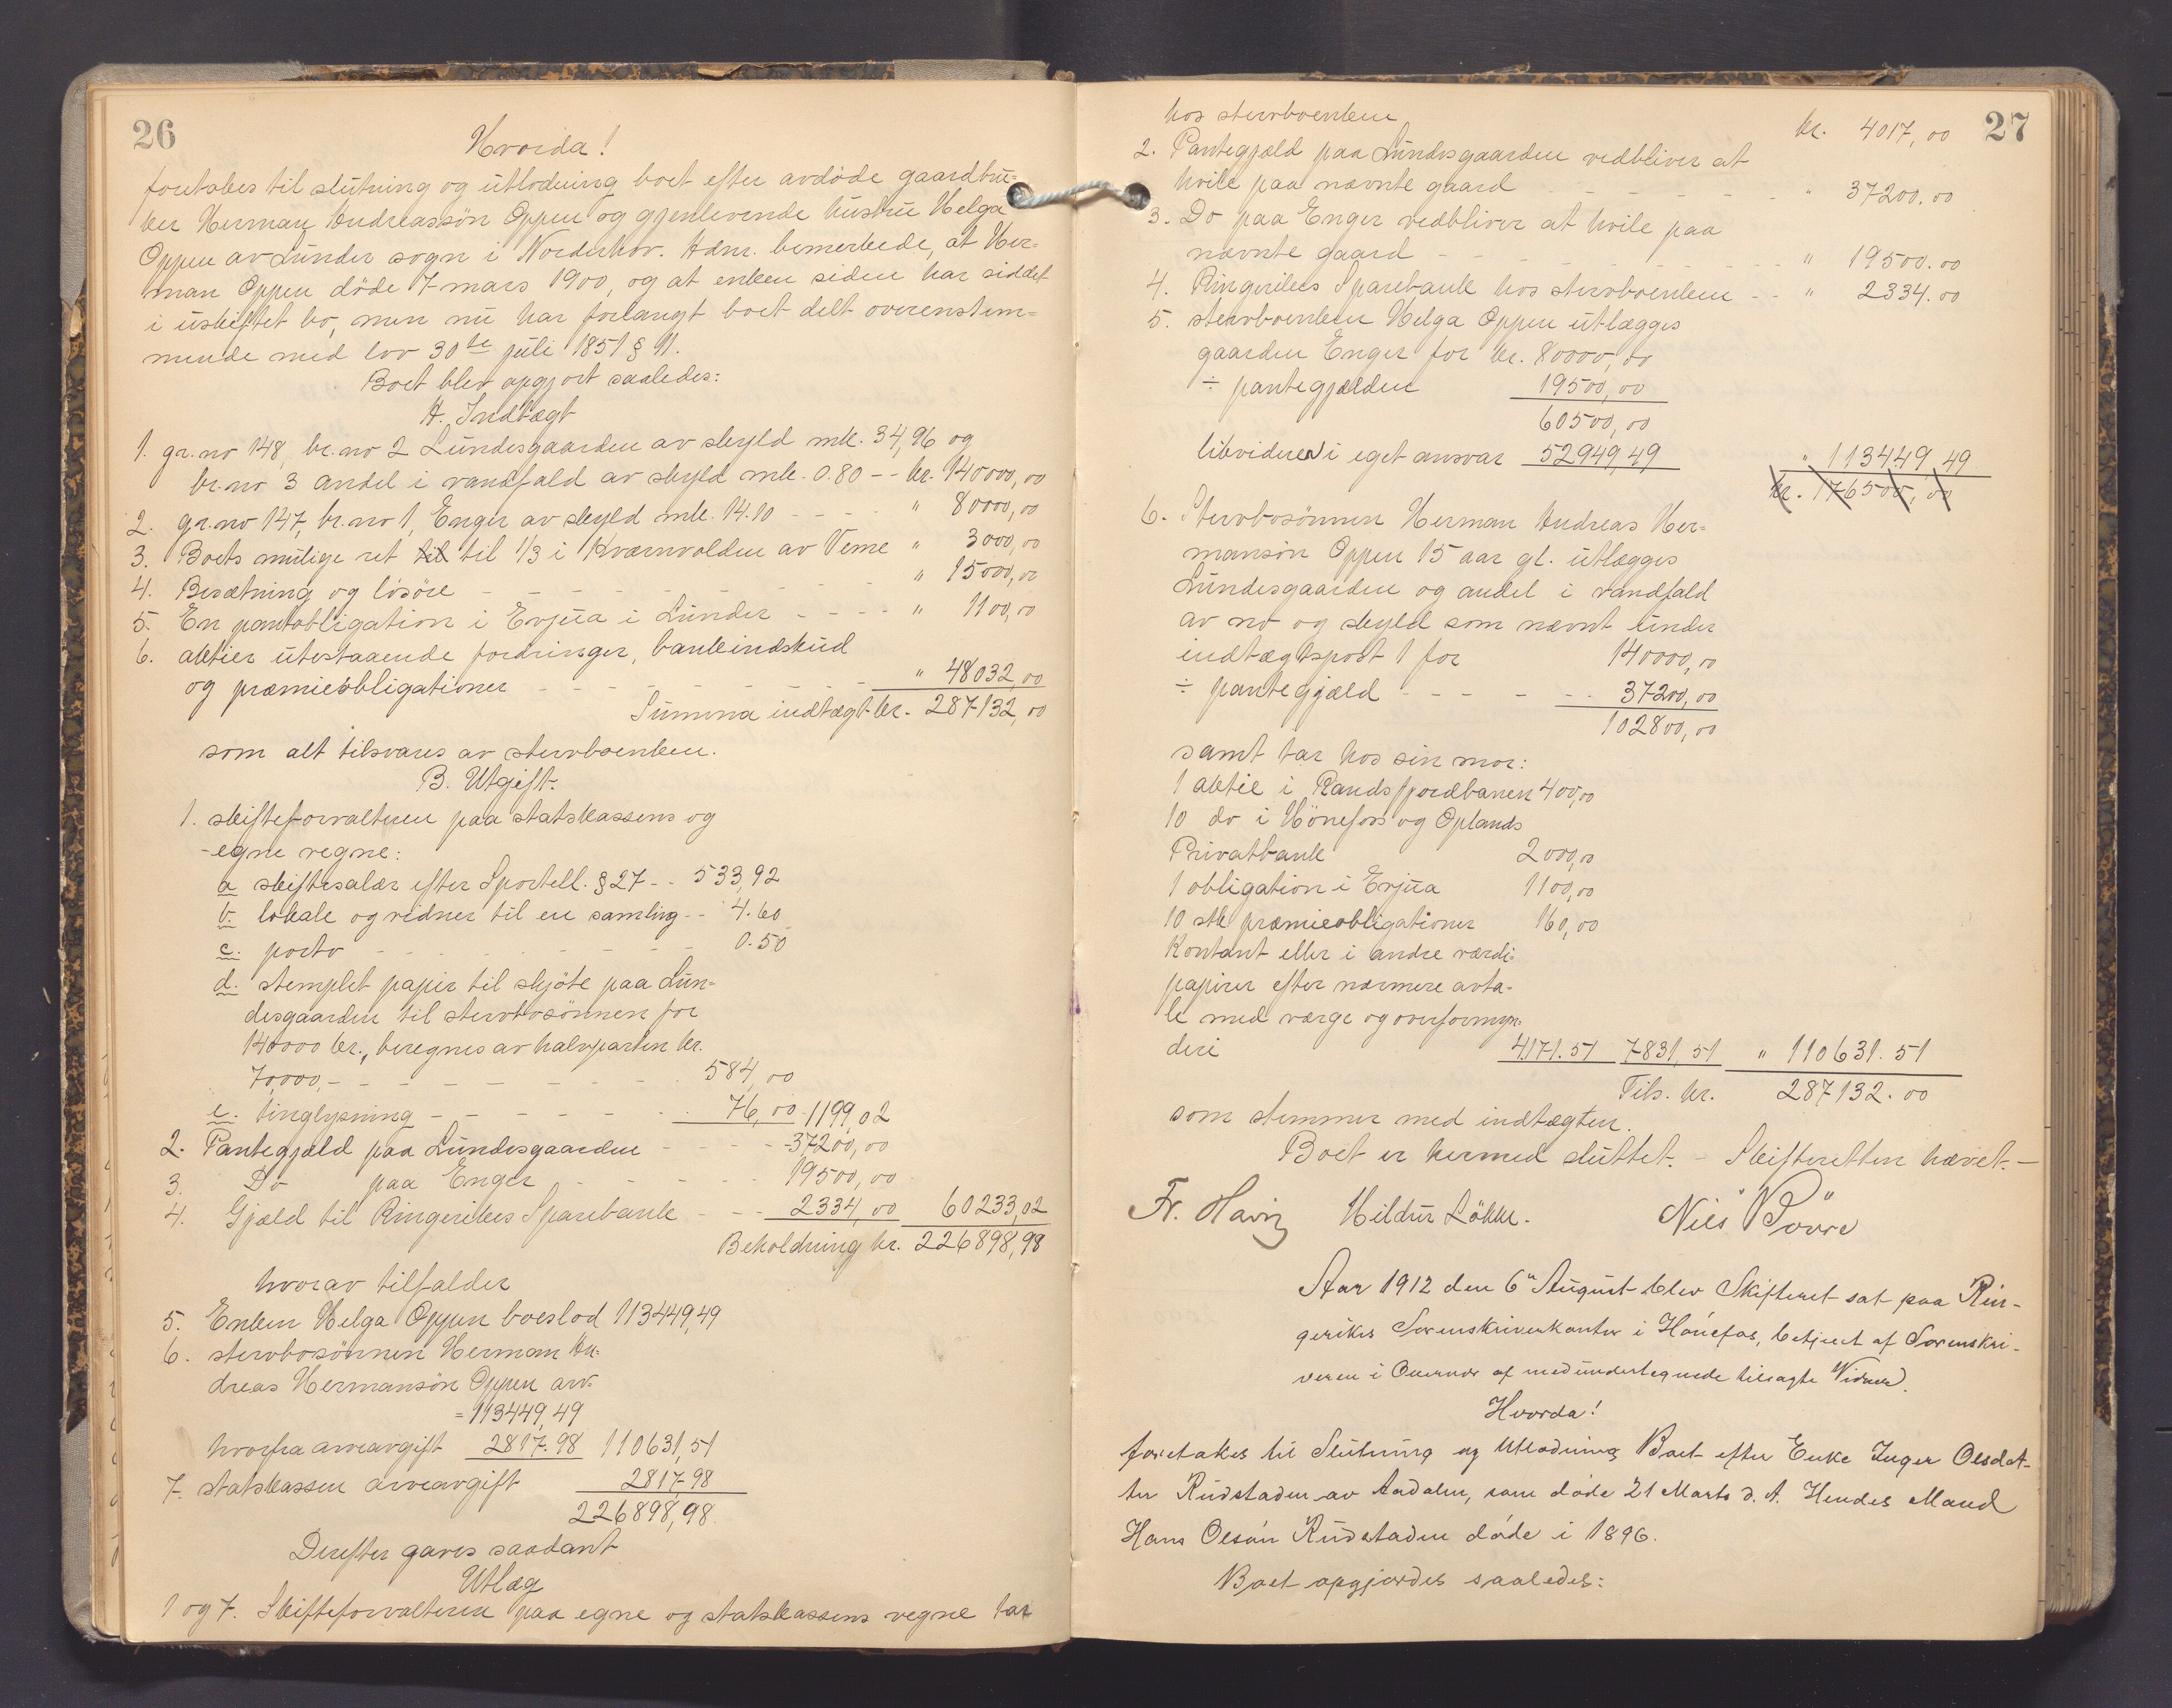 26
Hvorda!
foretakes til slutning og utlodning boet efter avdöde gaardbru-
ker Herman Andreassön Oppen og gjenlevende hustru Helga
Oppen av Lunder sogn i Norderhov. Adm. bemerkede, at Her-
man Oppen döde 7 mars 1900, og at enken siden har siddet
i uskiftet bo, men nu har forlangt boet delt overenstem-
mende med lov 30te juli 1851 § 11.
Boet blev opgjort saaledes:
A. Indtægt
1. gr.no 148, br.no 2 Lundesgaarden av skyld mk. 34,96 og
br.no 3 andel i vandfald av skyld mk. 0.80 -- kr. 140000,00
2. gr.no 147, br.no 1, Enger av skyld mk. 14.10 - - - - " 80000,00
3. Boets mulige ret til til 1/3 i Kværnvolden av Veme " 3000,00
4. Besætning og lösöre - - - - - - " 15000,00
5. En pantobligation i Evjua i Lunder - - - - " 1100,00
6. aktier utestaaende fordringer, bankindskud
og præmieobligationer - - - - - - " 48032,00
Summa indtægt kr. 287132,00
som alt tilsvares av stervboenken.
B. Utgift.
1. skifteforvalteren paa statskassens og
egne vegne:
a skiftesalær efter Sportell. § 27 -- 533,92
b. lokale og vidner til en samling -- 4.60
c. porto - - - - - - 0.50
d. stemplet papir til skjöte paa Lun-
desgaarden til stervbosönnen for
140000 kr., beregnes av halvparten kr.
70,000,- - - - - - - - 584,00
e. tinglysning - - - - - - 76,00 1199,02
2. Pantegjæld paa Lundesgaarden - - - - 37200,00
3. Do paa Enger - - - - - 19500,00
4. Gjæld til Ringerikes Sparebank - - - 2334,00 60233,02
Beholdning kr. 226898,98
hvorav tilfalder
5. Enken Helga Oppen boeslod 113449,49
6. stervbosönnen Herman An-
dreas Hermansön Oppen arv.
= 113449,49
hvorfra arveavgift 2817.98 110631,51
7. statskassen arveavgift 2817.98
226898,98.
Derefter gaves saadant
Utlæg
1 og 7. Skifteforvalteren paa egne og statskassens vegne har
27
hos stervboenken kr. 4017,00
2. Pantegjæld paa Lundesgaarden vedbliver at
hvile paa nævnte gaard - - - - - - " 37200.00
3. Do paa Enger vedbliver at hvile paa
nævnte gaard - - - - - - - - " 19500.00
4. Ringerikes Sparebank hos stervboenken -- " 2334.00
5. stervboenken Helga Oppen utlægges
gaarden Enger for kr. 80000,00
÷ pantegjælden 19500,00
60500,00
likviderer i eget ansvar 52949,49 " 113449 49
kr. 176500,00
6. Stervbosönnen Herman Andreas Her-
mansön Oppen 15 aar gl. utlægges
Lundesgaarden og andel i vandfald
av no og skyld som nævnt under
indtægtspost 1 for 140000,00
÷ pantegjæld - - - - - 37200,00
102800,00
samt har hos sin mor:
1 aktie i Randsfjordbanen 400,00
10 do i Hönefoss og Oplands
Privatbank 2000,00
1 obligation i Evjua 1100,00
10 stk præmieobligationer 160,00
Kontant eller i andre værdi-
papirer efter nærmere avta-
le med værge og overformyn-
deri 4171.51 7831,51 " 110631.51
Tils. kr. 287132.00
som stemmer med indtægten.
Boet er hermed sluttet. - Skifteretten hævet. -
Fr. Havig Hildur Lökke. Nils Povre
Aar 1912 den 6te August blev Skifteret sat paa Rin-
gerikes Sorenskriverkontor i Hönefos, betjent af Sorenskri-
veren i Overvær af medundertegnede tilsagte Vidner.
Hvorda!
foretakes til Slutning og Utlodning Boet efter Enke Inger Olsdat-
ter Rudstaden av Aadalen, som døde 21 Marts d. A. Hendes Mand
Hans Olsøn Rudstaden døde i 1896.
Boet opgjordes saaledes: